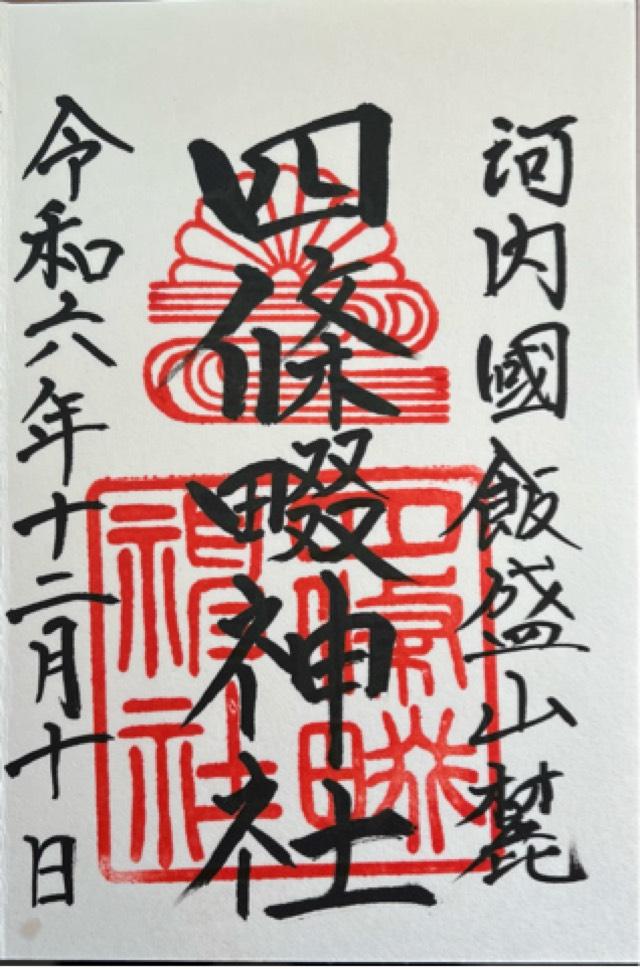 河内國飯盛山麓
四條畷神社
令和六年十二月十日
四條畷
神社